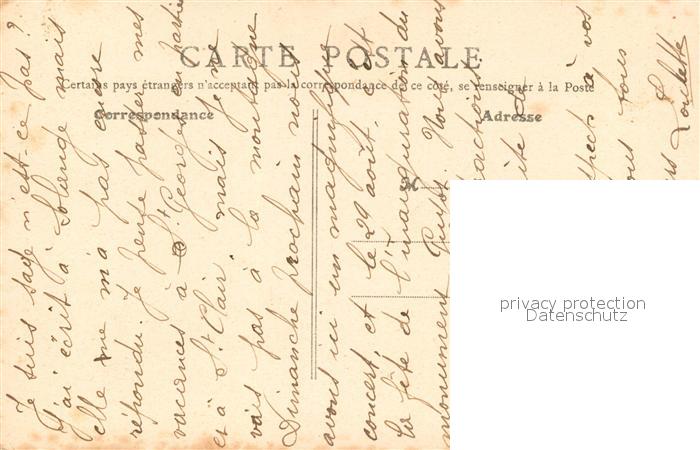 CARTE POSTALE
Certains pays étrangers n'acceptant pas la correspondance de ce côté, se renseigner à la Poste
Correspondance
Adresse
M
Je suis sage n'est ce pas?
J'ai écrit à Solange mais
elle ne m'a pas encore
répondu. Je pense passer mes
vacances à St Georges en partie
et à St Clair, mais je ne
vais pas à la montagne
Dimanche prochain nous
avons ici un magnifique
concert, et le 29 août, c'est
la fête de l'inauguration du
monument Guyot. Nous avons
à vos
tous
privacy protection
Datenschutz